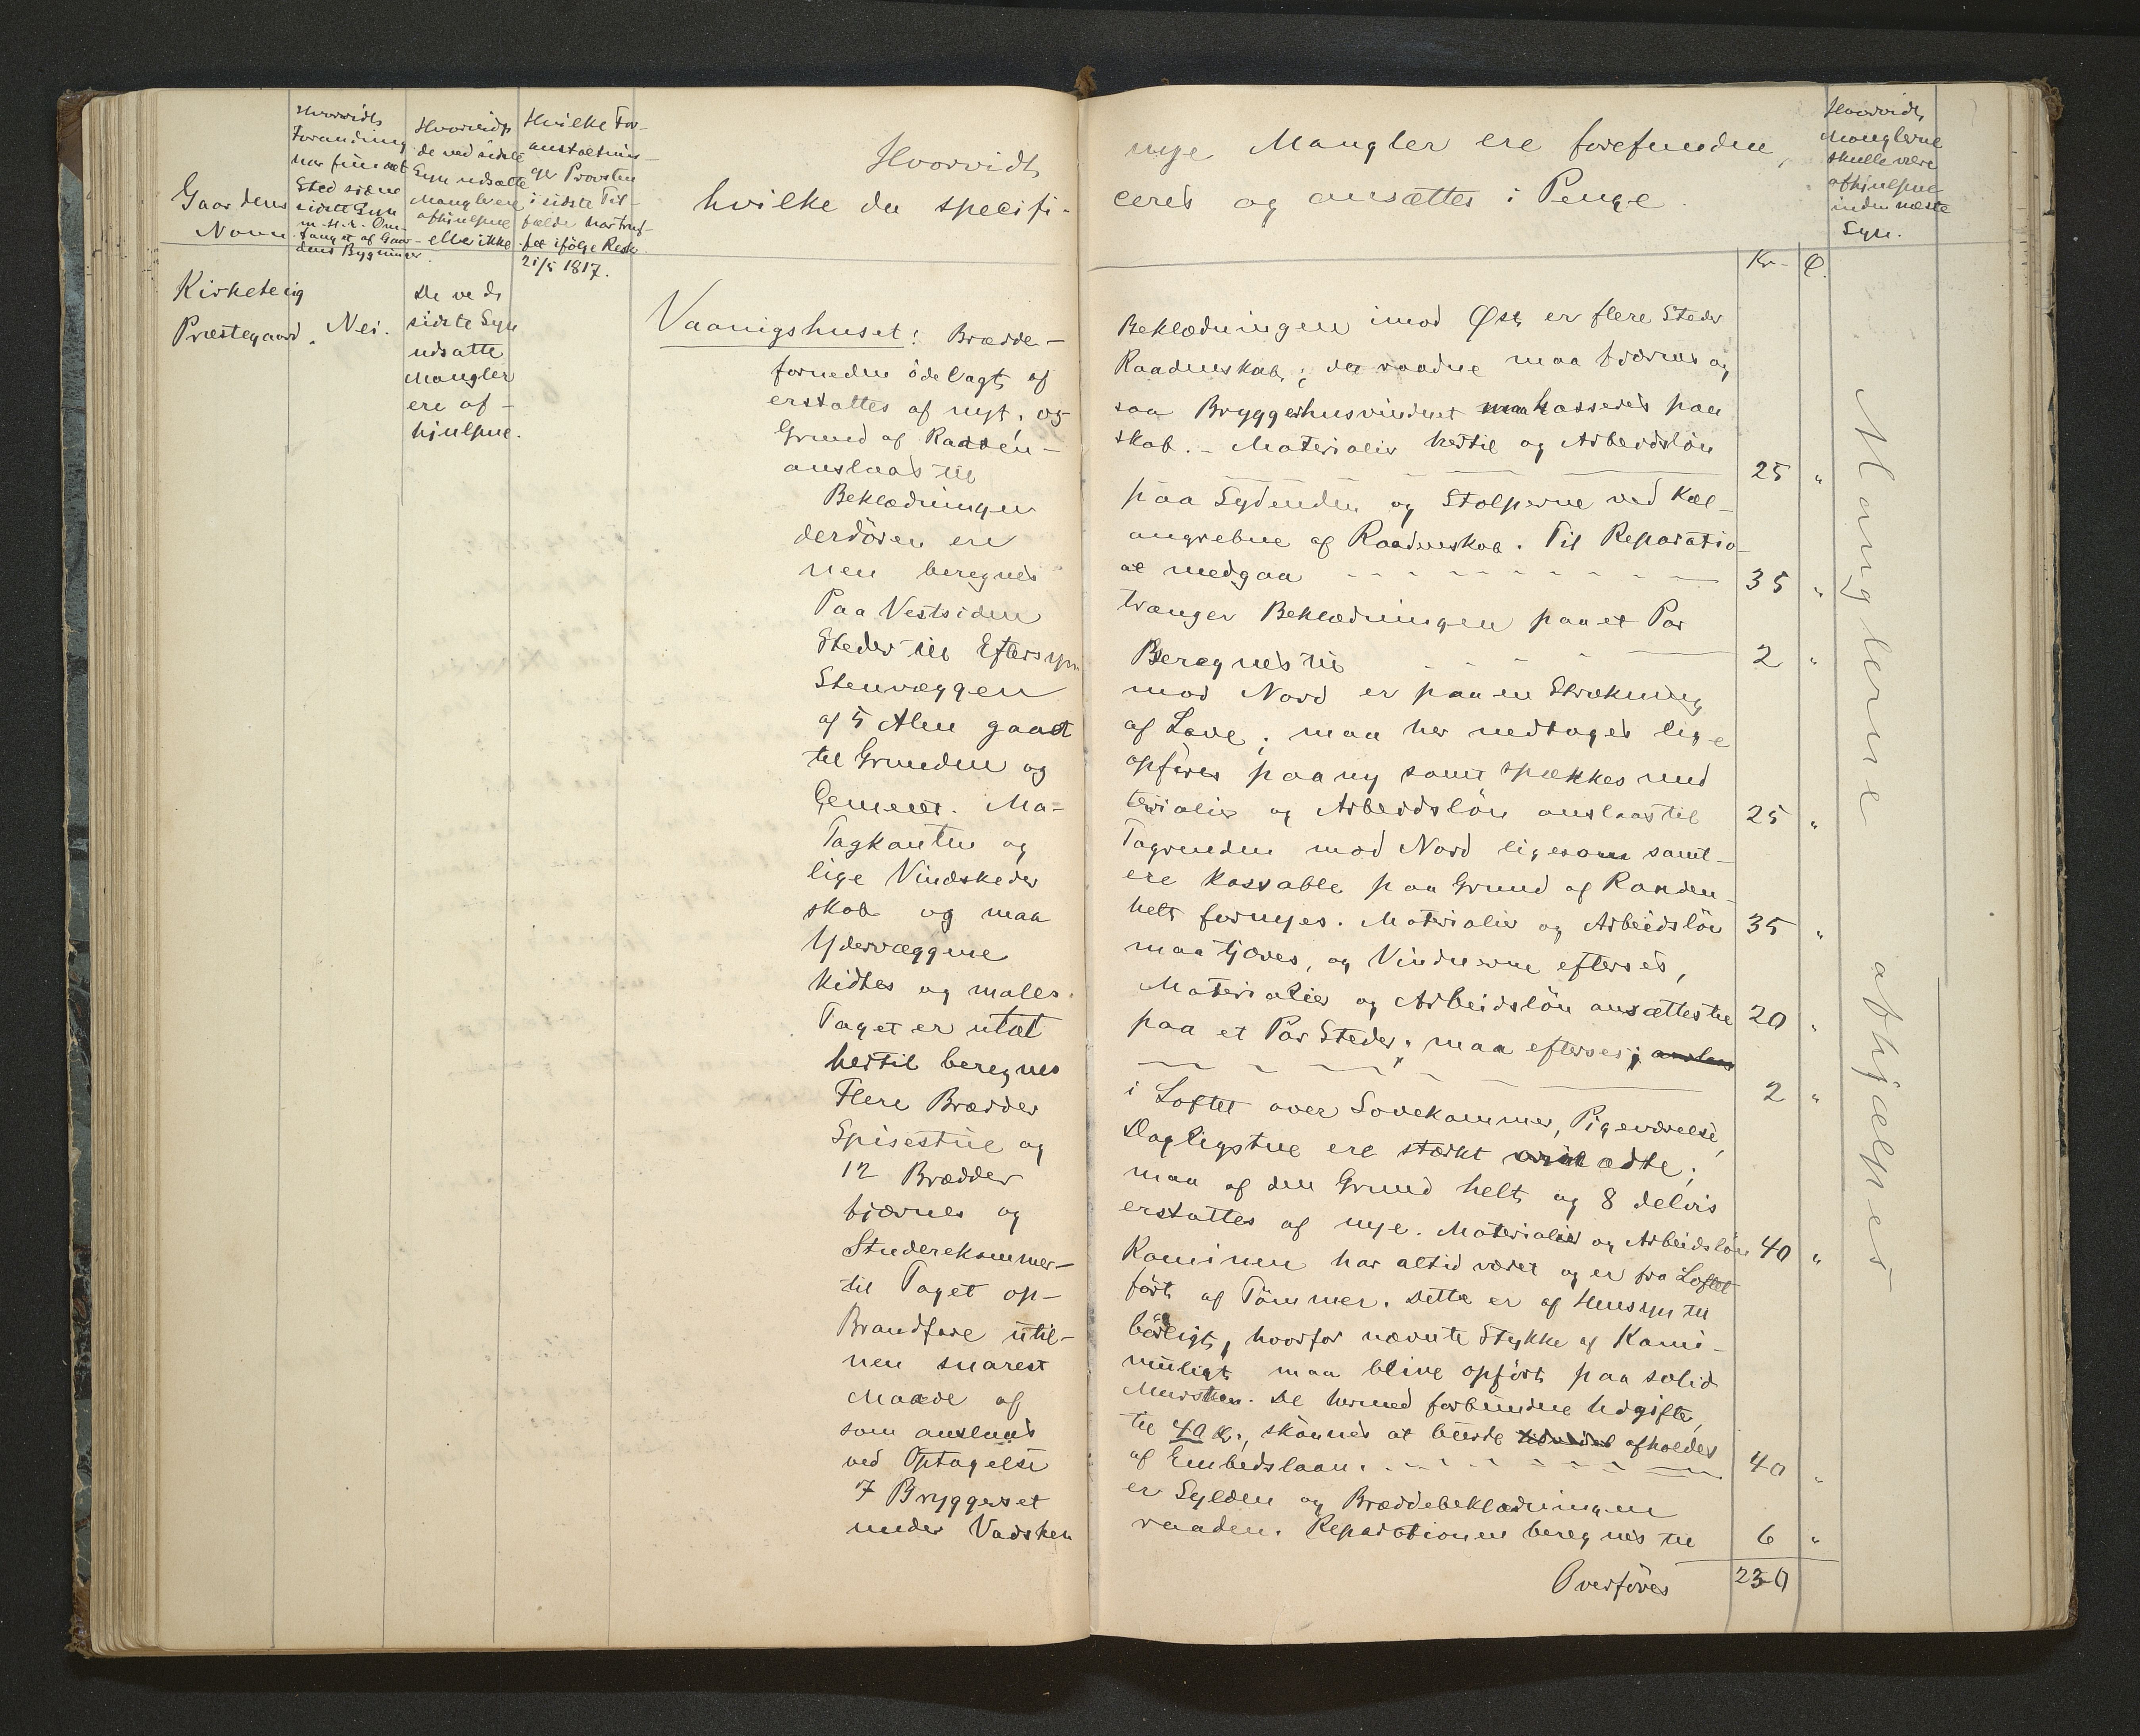 Gaardens
Navn.
Hvorvidt
Forandring
har fundet
Sted siden
sidste Syn
m. H. t. Om-
fanget af Gaar-
dens Bygninger
Hvorvidt
de ved sidste
Syn udsatte
Mangler ere
afhjulpne
eller ikke.
Hvilke For-
anstaltnin-
ger Provsten
i sidste Til-
fælde har truf-
fet ifølge Resk.
21/5 1817.
Hvorvidt nye Mangler ere forefundne,
hvilke da specifi- ceres og ansættes i Penge.
Hvorvidt
Manglerne
skulle være
afhjulpne
inden næste
Syn.
Kr. Ø.
Kirketeig
Præstegaard.
Nei.
De ved
sidste Syn
udsatte
Mangler
ere af-
hjulpne.
Vaanigshuset: Brædde- Beklædningen imod Øst er flere Steder
forneden ödelagt af Raadenskab; det raadne maa fjærnes og
erstattes af nyt, og saa Bryggerhusvinduet kasseres paa
Grund af Raaden- skab. - Materialier hertil og Arbeidslön
anslaaes til 25 "
Beklædningen paa Sydenden og Stolperne ved Kæl-
derdören ere angrebne af Raadenskab. Til Reparatio-
nen beregnes at medgaa 35 "
Paa Vestsiden trænger Beklædningen paa et Par
Steder til Eftersyn Beregnes til 2 "
Stenvæggen mod Nord er paa en Strækning
af 5 Alen gaaet af Lave; maa her nedtages lige
til Grunden og opføres paa ny samt spækkes med
Cement. Ma- terialier og Arbeidslön anslaaes til 25 "
Tagkanten og Tagrenden mod Nord ligesom samt-
lige Vindskeder ere kassable paa Grund af Raaden-
skab og maa helt fornyes. Materialier og Arbeidslön 35 "
Ydervæggene maa tjæres, og Vinduerne efterses,
kidtes og males. Materialier og Arbeidslön ansættes til 20 "
Taget er utæt paa et Par Steder; maa efterses;
hertil beregnes 2 "
Flere Brædder i Loftet over Sovekammer, Pigeværelse,
Spisestue og Dagligstue ere stærkt ædte;
12 Brædder maa af den Grund helt og 8 delvis
fjærnes og erstattes af nye. Materialier og Arbeidslön 40 "
Studerekammer- Kaminen har altid været og er fra Loftet
til Taget op- fört af Tömmer. Dette er af Hensyn til
Brandfare util- börligt, hvorfor nævnte Stykke af Kami-
nen snarest muligt maa blive opfört paa solid
Maade af Mursten. De hermed forbundne Udgifter,
som anslaaes til 40 Kr., skönnes at burde afholdes
ved Optagelse af Embedslaan. 40 "
I Bryggerset er Sylden og Bræddebeklædningen
under Vasken raaden. Reparationen beregnes til 6 "
Overföres 230
Manglerne afhjælpes